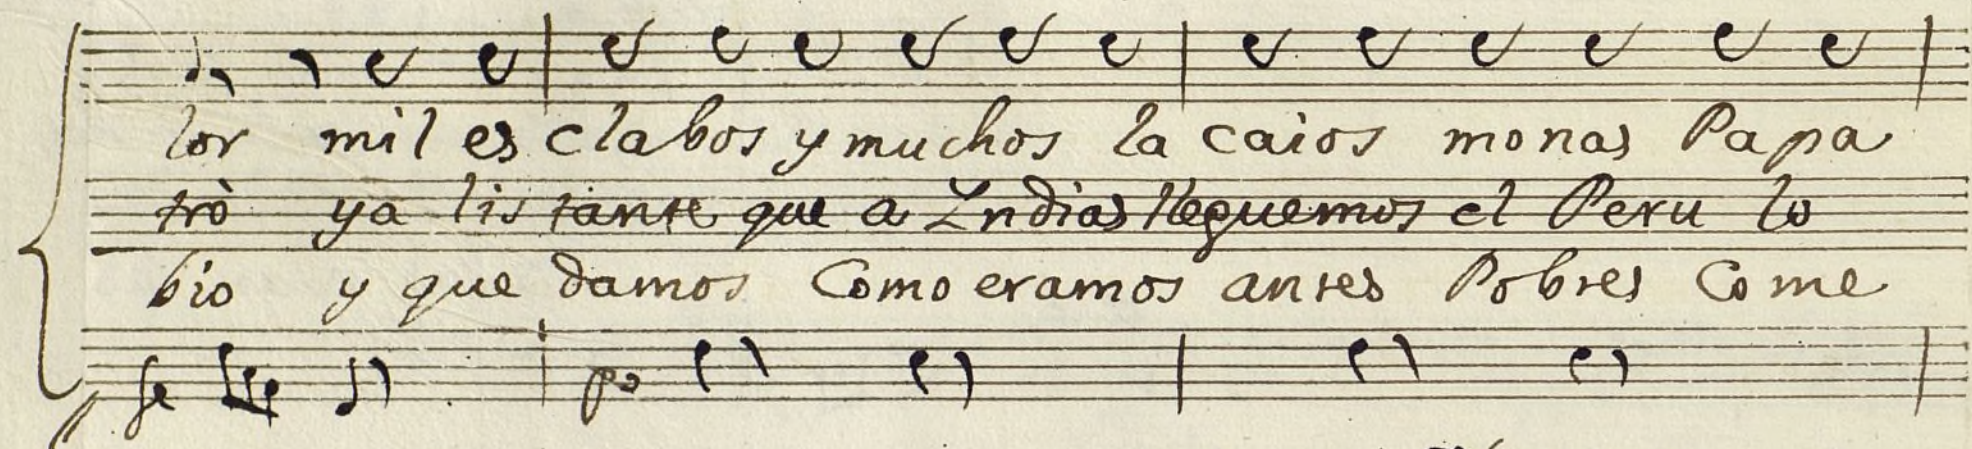 lor mil es clabos y muchos la caios monas Papa
trò ya lis tante que a Indias lleguemos el Peru lo
bio y que damos Como eramos antes Pobres Come
fe po